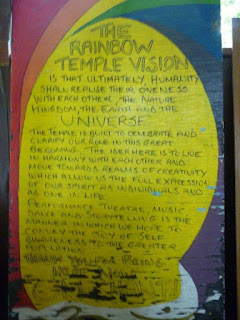 THE
RAINBOW
TEMPLE VISION
IS THAT ULTIMATELY, HUMANITY
SHALL REALISE THEIR ONENESS
WITH EACH OTHER, THE NATURE
KINGDOM, THE EARTH AND THE
UNIVERSE
THE TEMPLE IS BUILT TO CELEBRATE AND
CLARIFY OUR ROLE IN THIS GREAT
BECOMING. THE IDEA HERE IS TO LIVE
IN HARMONY WITH EACH OTHER AND
MOVE TOWARDS REALMS OF CREATIVITY
WHICH ALLOWS THE FULL EXPRESSION
OF OUR SPIRIT AS INDIVIDUALS AND
AS ONE IN LIFE
PERFORMANCE THEATRE, MUSIC
DANCE AND STORYTELLING IS THE
MANNER IN WHICH WE HOPE TO
CONVEY THE JOY OF SELF
AWARENESS TO THE GREATER
THANK YOU FOR BEING